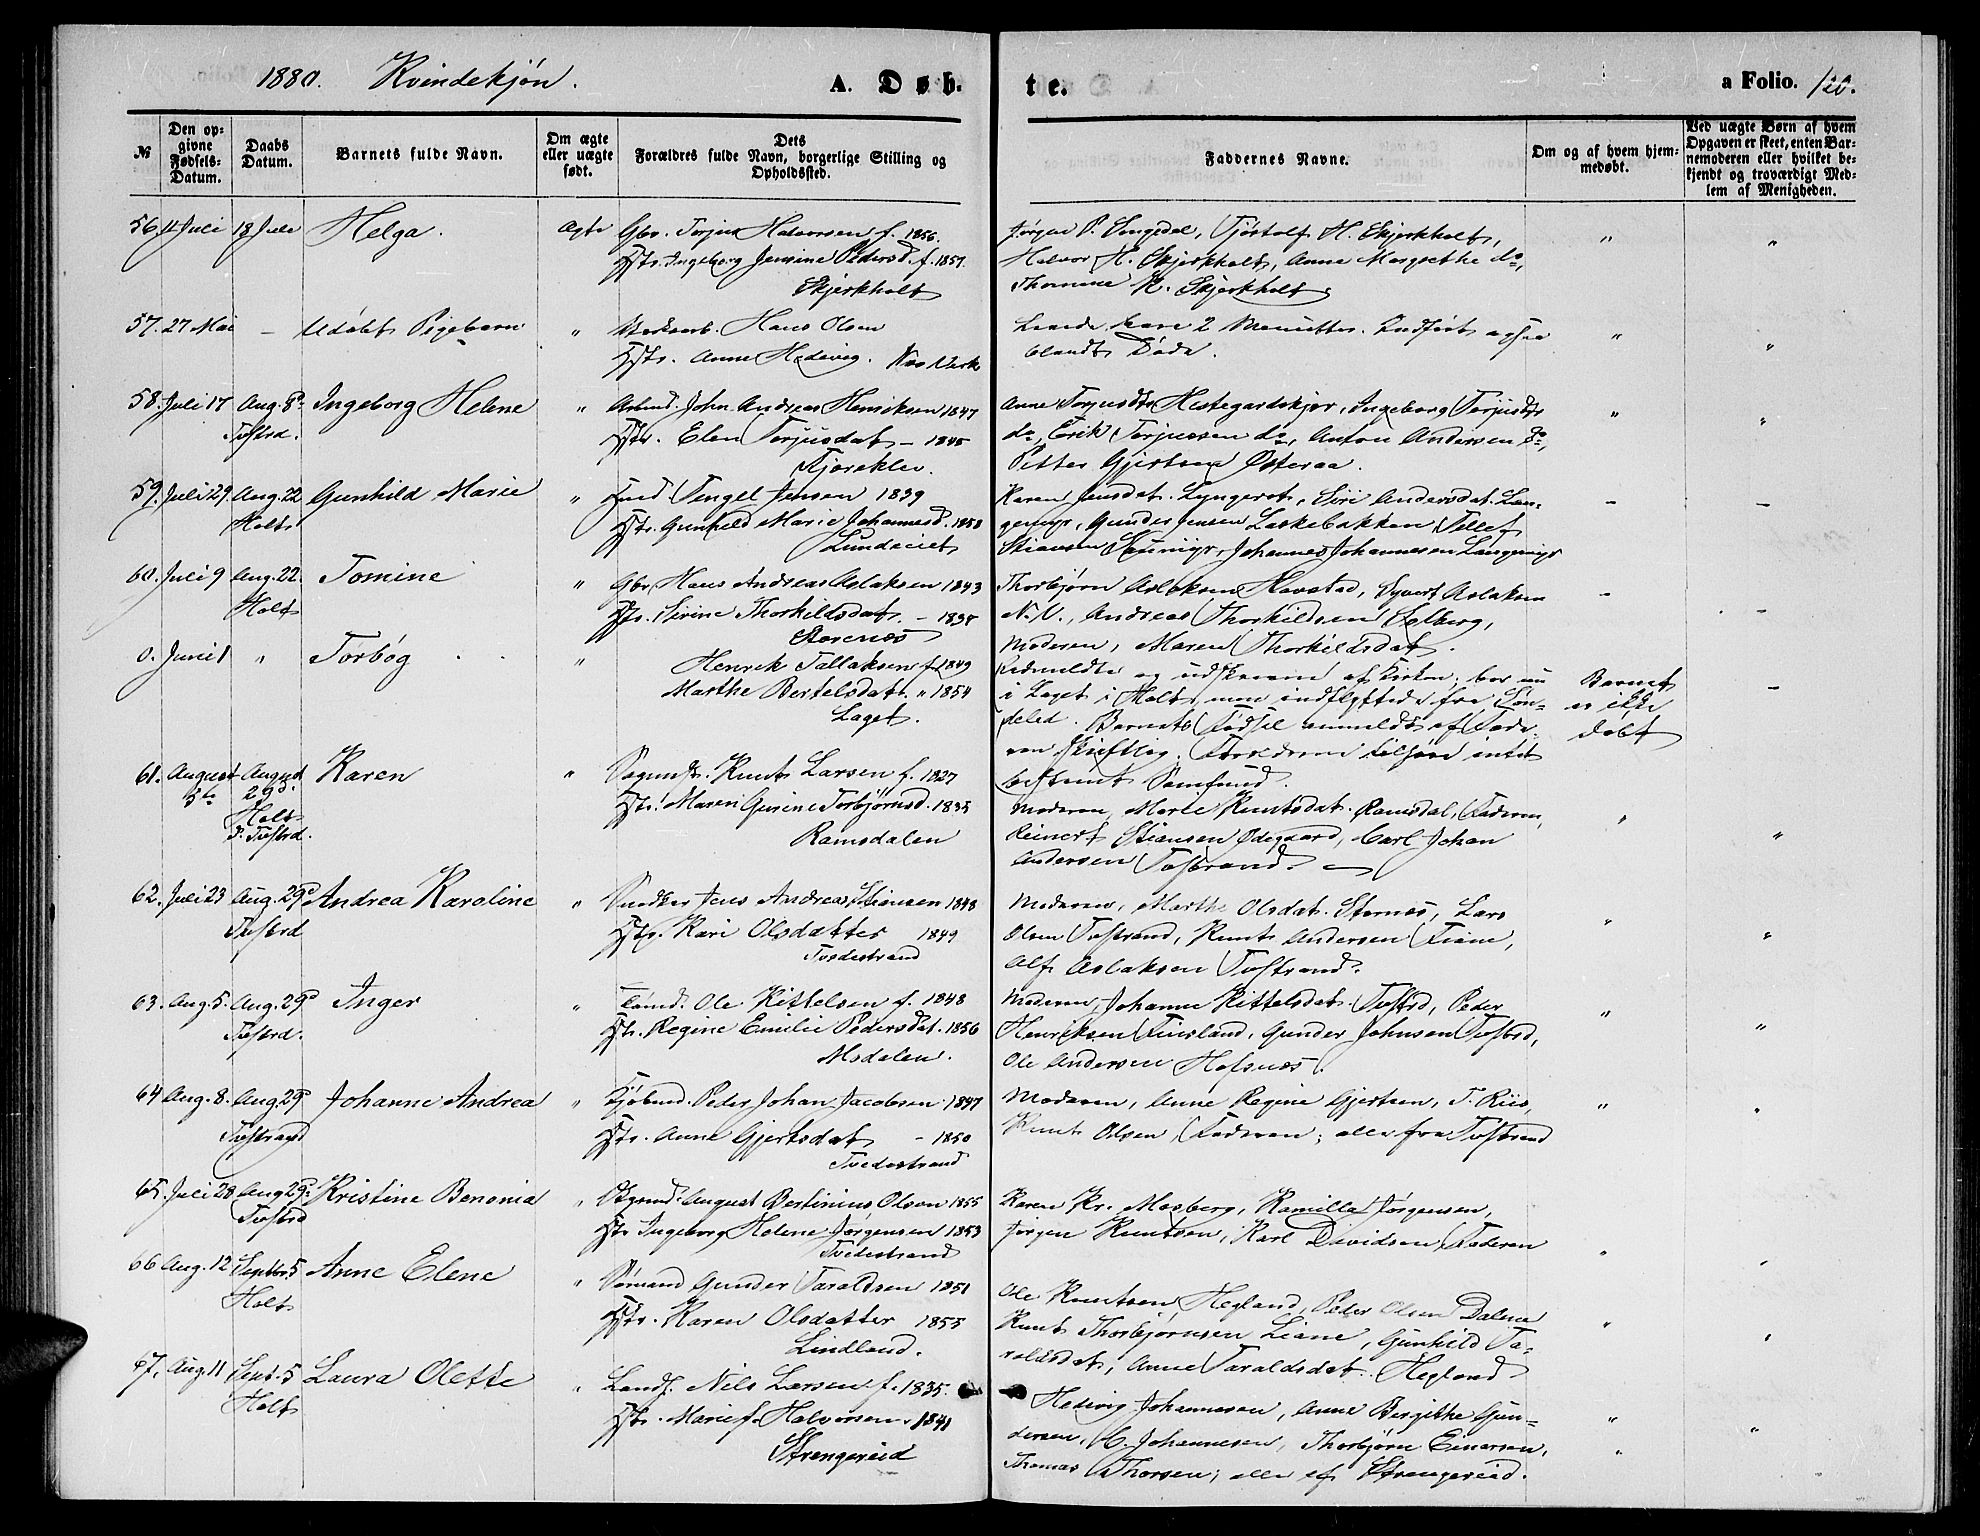 1880. Kvindekjøn.
A. Døb-
te.
a Folio. 120.
№
Den op-
givne
Fødsels-
Datum.
Daabs
Datum.
Barnets fulde Navn.
Om ægte
eller uægte
født.
Dets
Forældres fulde Navn, borgerlige Stilling og
Opholdssted.
Faddernes Navne.
Om og af hvem hjem-
medøbt.
Ved uægte Børn af hvem
Opgaven er skeet, enten Bar-
nemoderen eller hvilket be-
kjendt og troværdigt Med-
lem af Menigheden.
56. 4 Juli 18 Juli Helga. Ægte Gbr. Torjus Halvorsen f. 1856.
Hstr. Ingeborg Jensine Pedersd. f. 1857.
Skjerkholt
Jørgen P. Songedal, Tjøstolf H. Skjerkholt, " "
Halvor H. Skjerkholt, Anne Margrethe do,
Thomine K. Skjerkholt
57. 27 Mai — Udøbt Pigebarn " Hans Olsen
Hstr. Anne Hedevig. Næs Værk
Levede bare 2 Minutter. Indført ogsaa " "
blandt Døde.
58. Juli 17 Aug. 8de Ingeborg Helene " Arbmd. John Andreas Henriksen 1847
Tvstrd. Hstr. Elen Torjusdat — 1845
Anne Torjusdtr Hestegardskjær, Ingeborg Torjusdtr " "
do, Erik Torjussen do, Anton Andersen do,
Petter Gjertsen Østeraa.
59. Juli 29 Aug. 22 Gunhild Marie " Tengel Jensen 1839
Holt Hstr. Gunhild Marie Johannesd. 1850
Lunderiet
Karen Jensdat. Lyngrot, Siri Andersdat. Lan- — —
gemyr, Gunder Jensen Laskebakken, Tellef
Stiansen Johannes Johannesen Langemyr
60. Juli 9 Aug. 22. Tomine " Gbr. Hans Andreas Aslaksen 1843
Holt Hstr. Sirine Thorkildsdat. — 1838
Thorbjørn Aslaksen Havstad, Syvert Aslaksen — —
N. N., Andreas Thorkildsen Solberg,
Moderen, Maren Thorkildsdat.
0. Juni 1 " Torbøg " Henrik Tallaksen f. 1849
Marthe Bertelsdat. " 1854
Laget.
Udmeldte og udskrevne af Kirken; bor nu Barnet —
i Laget i Holt, men indflyttede fra Søn- er ikke
deled. Barnets Fødsel anmeldt af Fade- døbt
ren skriftlig. Forældrene tilhøre intet
bestemt Samfund.
61. August August Karen " Knut Larsen f. 1827
5te 29de. Hstr. Maren Gurine Torbjørnsd. 1835
Holt Ramsdalen
P. Tvstrd.
Moderen, Marie Knutsdat. Ramsdal, Faderen, " "
Reinert Stiansen Ødegaard, Carl Johan
Andersen Tvstrand.
62. Juli 23 Aug. 29de Andrea Karoline " Snedker Jens Andreas Stiansen 1848
Tvstrd Hstr. Kari Olsdatter 1849
Tvedestrand
Moderen, Marthe Olsdat. Stornæs, Lars " "
Olsen Tvstrand, Knut Andersen Fiane,
Alf Aslaksen Tvstrand.
63. Aug. 5. Aug. 29de Inger " Tømd. Ole Kittelsen f. 1848
Tvstrd. Hstr. Regine Emilie Pedersdat. 1856
Modalen.
Moderen, Johanne Kittelsdat. Tvstrd, Peder " "
Henriksen Fiusland, Gunder Johnsen Tvstrd,
Ole Andersen Hofsnæs.
64 Aug. 8. Aug. 29de Johanne Andrea " Peder Johan Jacobsen 1847
Tvstrand Hstr. Anne Gjertsdat — 1850
Tvedestrand
Moderen, Anne Regine Gjertsen, T. Riis, " "
Knut Olsen, Faderen; alle fra Tvstrand
65. Juli 28 Aug. 29de Kristine Benonia " August Bertinius Olsen 1855
Tvstrd Hstr. Ingeborg Helene Jørgensen 1853
Tvedestrand
Karen Kr. Mosberg, Kamilla Jørgensen,
Jørgen Knutsen, Karl Davidsen, Faderen " "
66 Aug. 12 Septbr. 5 Anne Elene " Sømand Gunder Taraldsen 1851
Holt Hstr. Karen Olsdatter 1855
Lindland.
Ole Knutsen Hegland, Peder Olsen Dalene " "
Knut Thorbjørnsen Liane, Gunhild Ta-
raldsdat, Anne Taraldsdat. Hegland
67. Aug. 11 Sept. 5 Laura Olette " Landh. Nils Larsen f. 1835.
Holt Hstr. Marie f. Halvorsen. 1841
Strengereid
Hedevig Johannesen, Anne Birgithe Gun- " "
dersen, C. Johannesen, Thorbjørn Einersen, "
Thomas Thorsen; alle af Strengereid.